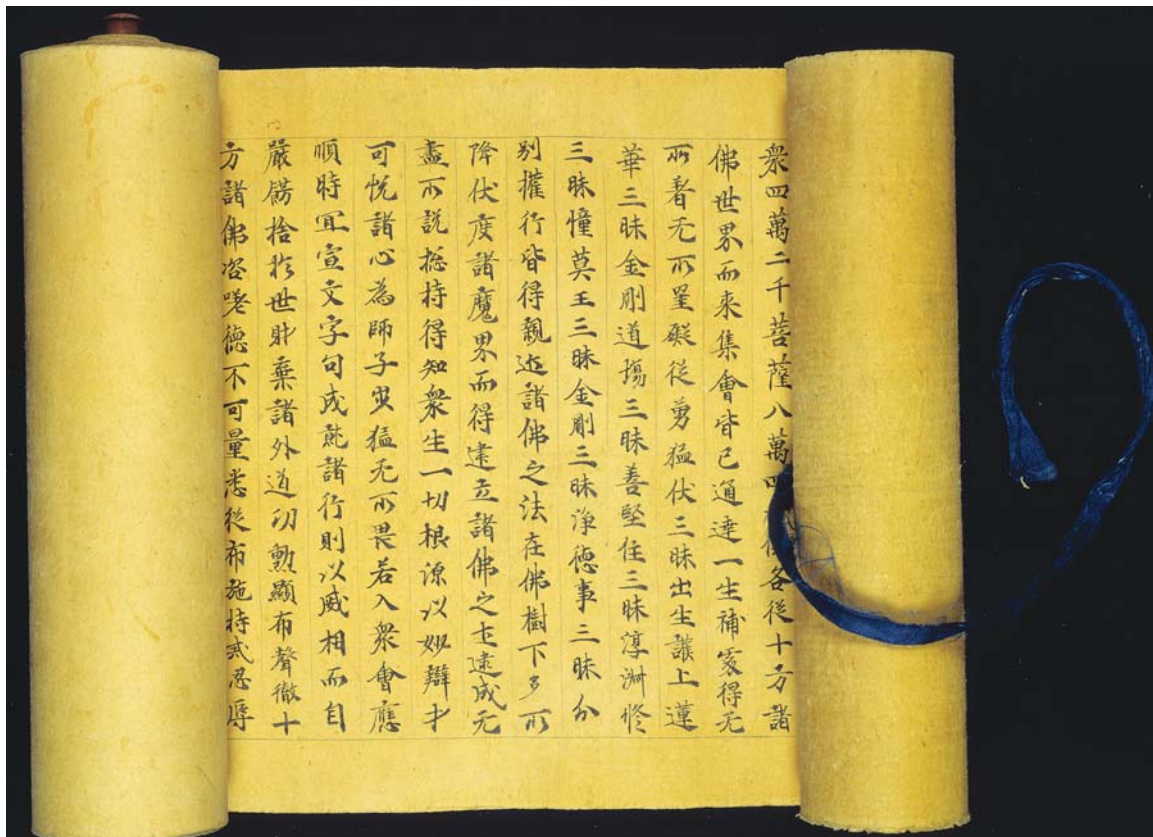 衆四萬二千菩薩八萬四 各從十方諸
佛世界而來集會皆已通達一生補處得无
所著无所罣礙從勇猛伏三昧出生離上蓮
華三昧金剛道場三昧善堅住三昧淳淑修
三昧幢英王三昧金剛三昧淨德事三昧分
别權行皆得親近諸佛之法在佛樹下多所
降伏度諸魔界而得建立諸佛之土逮成无
盡所說捴持得知衆生一切根源以妙辯才
可悅諸心為師子吼猛无所畏若入衆會應
順時冝宣文字句成就諸行則以威相而自
嚴餝捨於世財棄諸外道功勲顯布聲徹十
方諸佛咨嗟德不可量悉從布施持戒忍辱